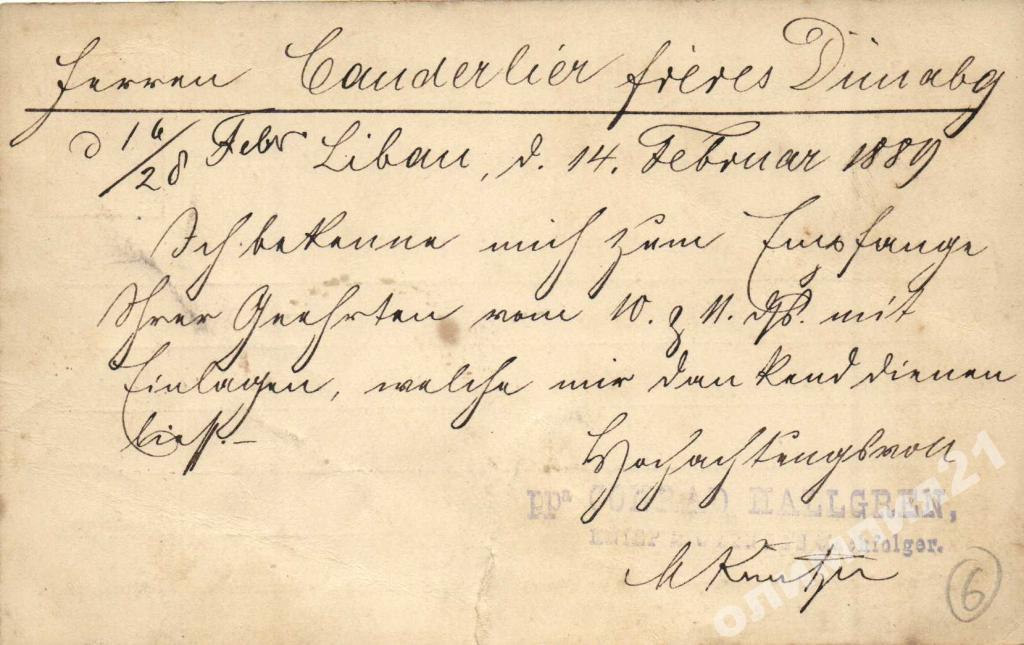 Herren Cauderlier frères Dünabg
d 16/28 Febr Libau, d. 14. Februar 1889
Ich bekenne mich zum Empfange
Ihrer Geehrten vom 10. & 11. ds. mit
Einlagen, welche mir dankend dienen
liess.–
Hochachtungsvoll
ppa CONRAD HALLGREN,
chfolger.
олипил21
6